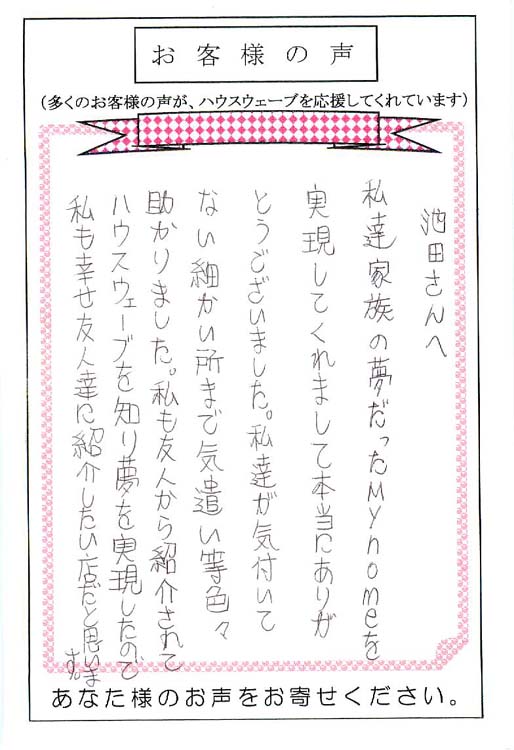 お客様の声
（多くのお客様の声が、ハウスウェーブを応援してくれています）
池田さんへ
私達家族の夢だったMyhomeを
実現してくれまして本当にありが
とうございました。私達が気付いて
ない細かい所まで気遣い等色々
助かりました。私も友人から紹介されて
ハウスウェーブを知り夢を実現したので
私も幸せ友人達に紹介したい店だと思いま
す。
あなた様のお声をお寄せください。